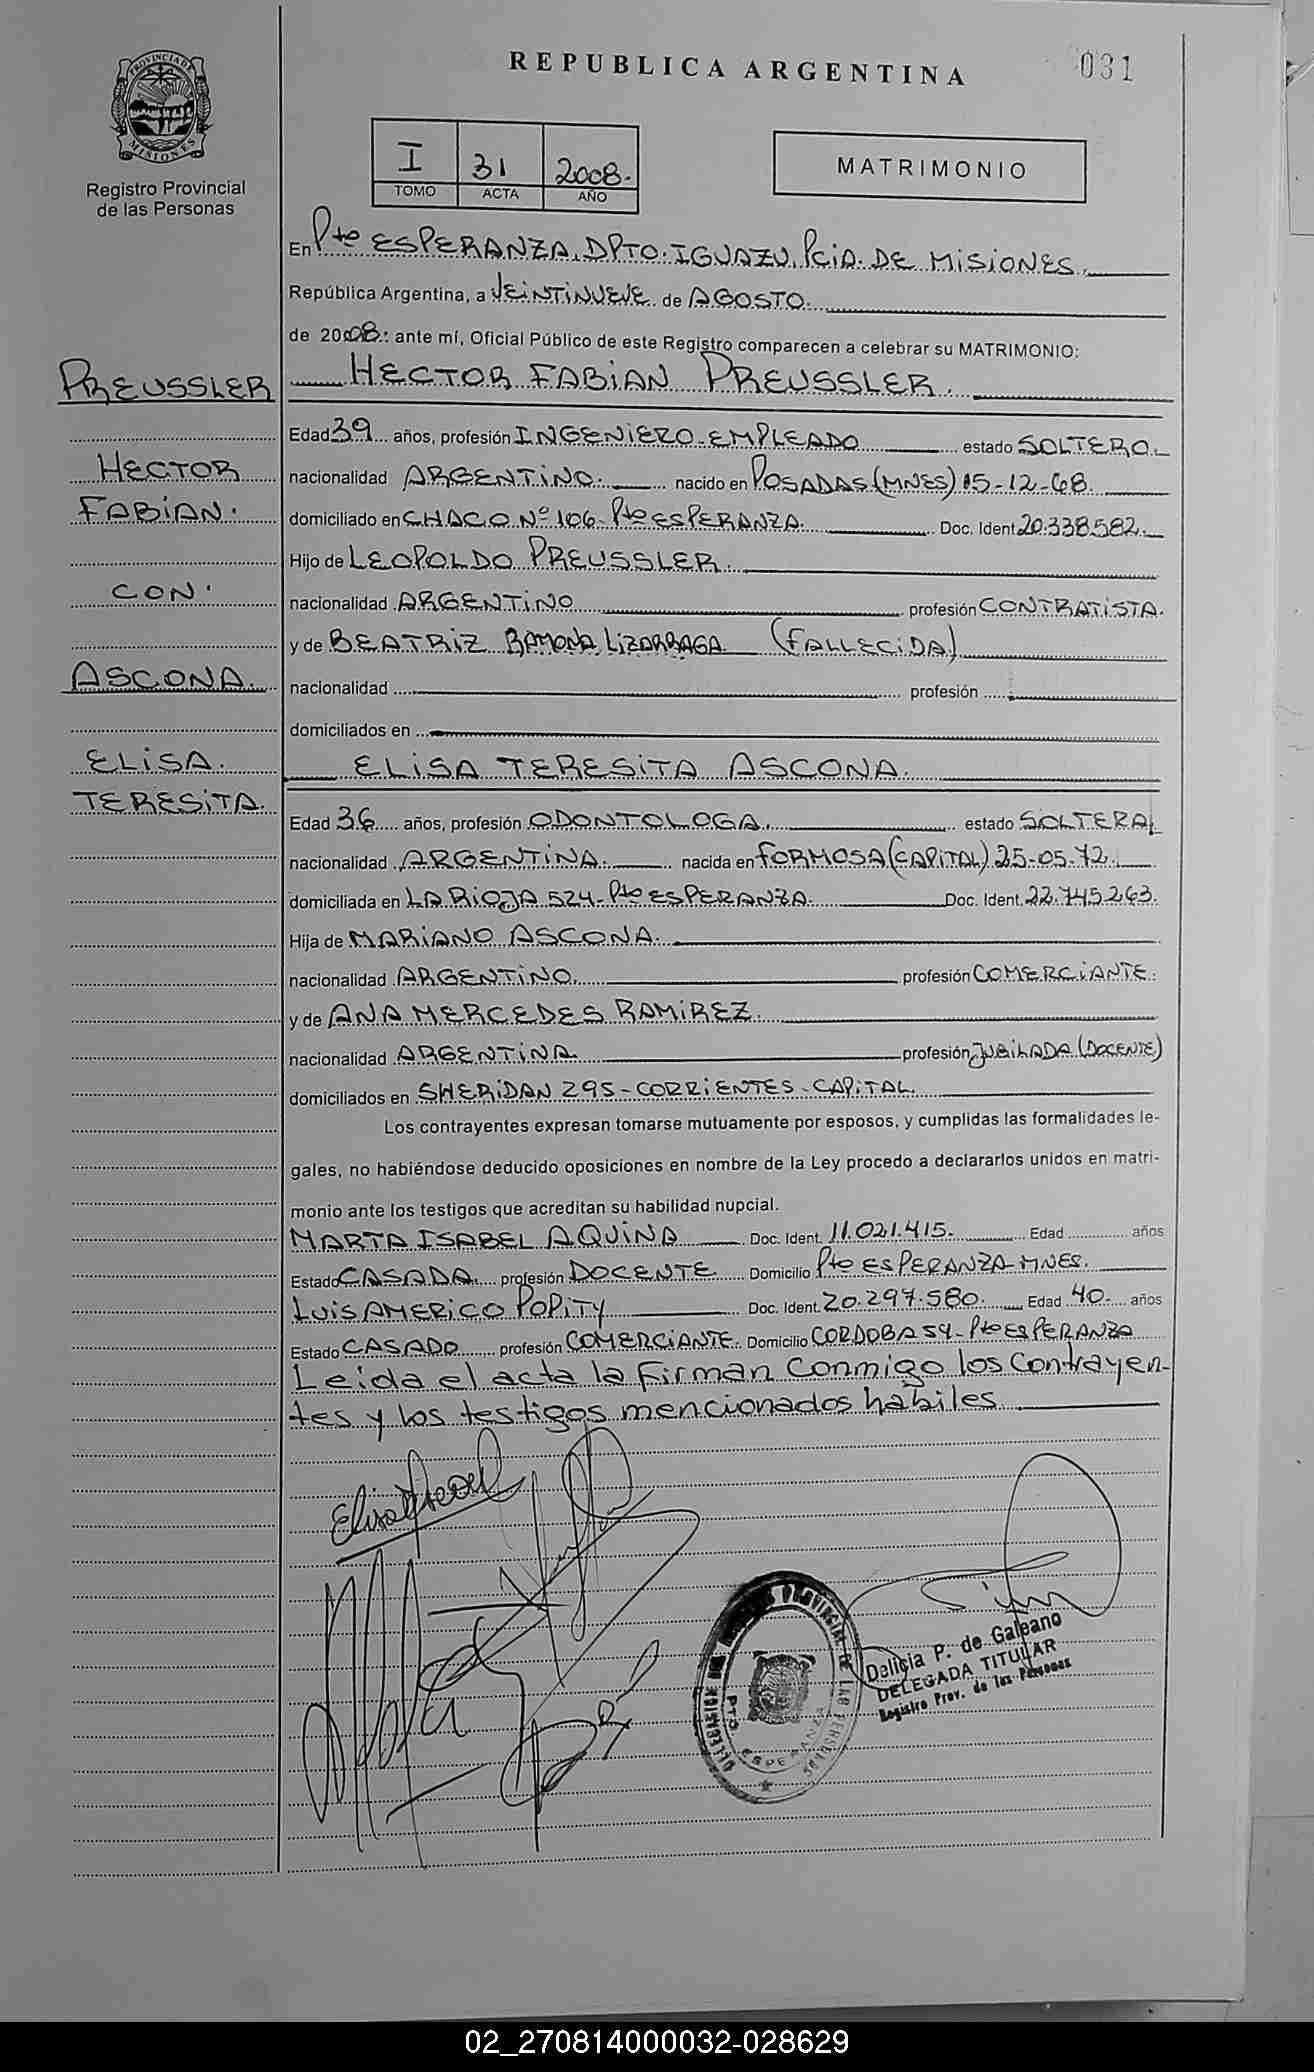 REPUBLICA ARGENTINA
031
PROVINCIA DE MISIONES
Registro Provincial
de las Personas
I 31 2008.
TOMO ACTA AÑO
MATRIMONIO
En Pto ESPERANZA, DPTO. IGUAZU, PciA. DE MISIONES.
República Argentina, a VEINTINUEVE de AGOSTO.
de 2008.: ante mí, Oficial Público de este Registro comparecen a celebrar su MATRIMONIO:
PREUSSLER
HECTOR
FABIAN.
CON.
ASCONA.
ELISA.
TERESITA.
HECTOR FABIAN PREUSSLER.
Edad 39 años, profesión INGENIERO-EMPLEADO estado SOLTERO.
nacionalidad ARGENTINO. nacido en POSADAS (MNES) 15-12-68.
domiciliado en CHACO Nº 106-Pto ESPERANZA. Doc. Ident. 20.338.582.
Hijo de LEOPOLDO PREUSSLER.
nacionalidad ARGENTINO profesión CONTRATISTA.
y de BEATRIZ RAMONA LIZARRAGA (FALLECIDA)
nacionalidad profesión
domiciliados en
ELISA TERESITA ASCONA.
Edad 36 años, profesión ODONTOLOGA. estado SOLTERA
nacionalidad ARGENTINA. nacida en FORMOSA (CAPITAL) 25-05-72.
domiciliada en LA RIOJA 524-Pto ESPERANZA. Doc. Ident. 22.745.263.
Hija de MARIANO ASCONA.
nacionalidad ARGENTINO. profesión COMERCIANTE.
y de ANA MERCEDES RAMIREZ.
nacionalidad ARGENTINA profesión JUBILADA (DOCENTE)
domiciliados en SHERIDAN 295-CORRIENTES-CAPITAL.
Los contrayentes expresan tomarse mutuamente por esposos, y cumplidas las formalidades le-
gales, no habiéndose deducido oposiciones en nombre de la Ley procedo a declararlos unidos en matri-
monio ante los testigos que acreditan su habilidad nupcial.
MARTA ISABEL AQUINA Doc. Ident. 11.021.415. Edad años
Estado CASADA profesión DOCENTE Domicilio Pto ESPERANZA-MNES.
LUIS AMERICO POPITY Doc. Ident. 20.297.580. Edad 40. años
Estado CASADO profesión COMERCIANTE. Domicilio CORDOBA 54-Pto ESPERANZA
Leida el acta la firman conmigo los contrayen-
tes y los testigos mencionados habiles
DELEGACION DEL REGISTRO PROVINCIAL DE LAS PERSONAS
PTO. ESPERANZA
Delicia P. de Galeano
DELEGADA TITULAR
Registro Prov. de las Personas
02_270814000032-028629